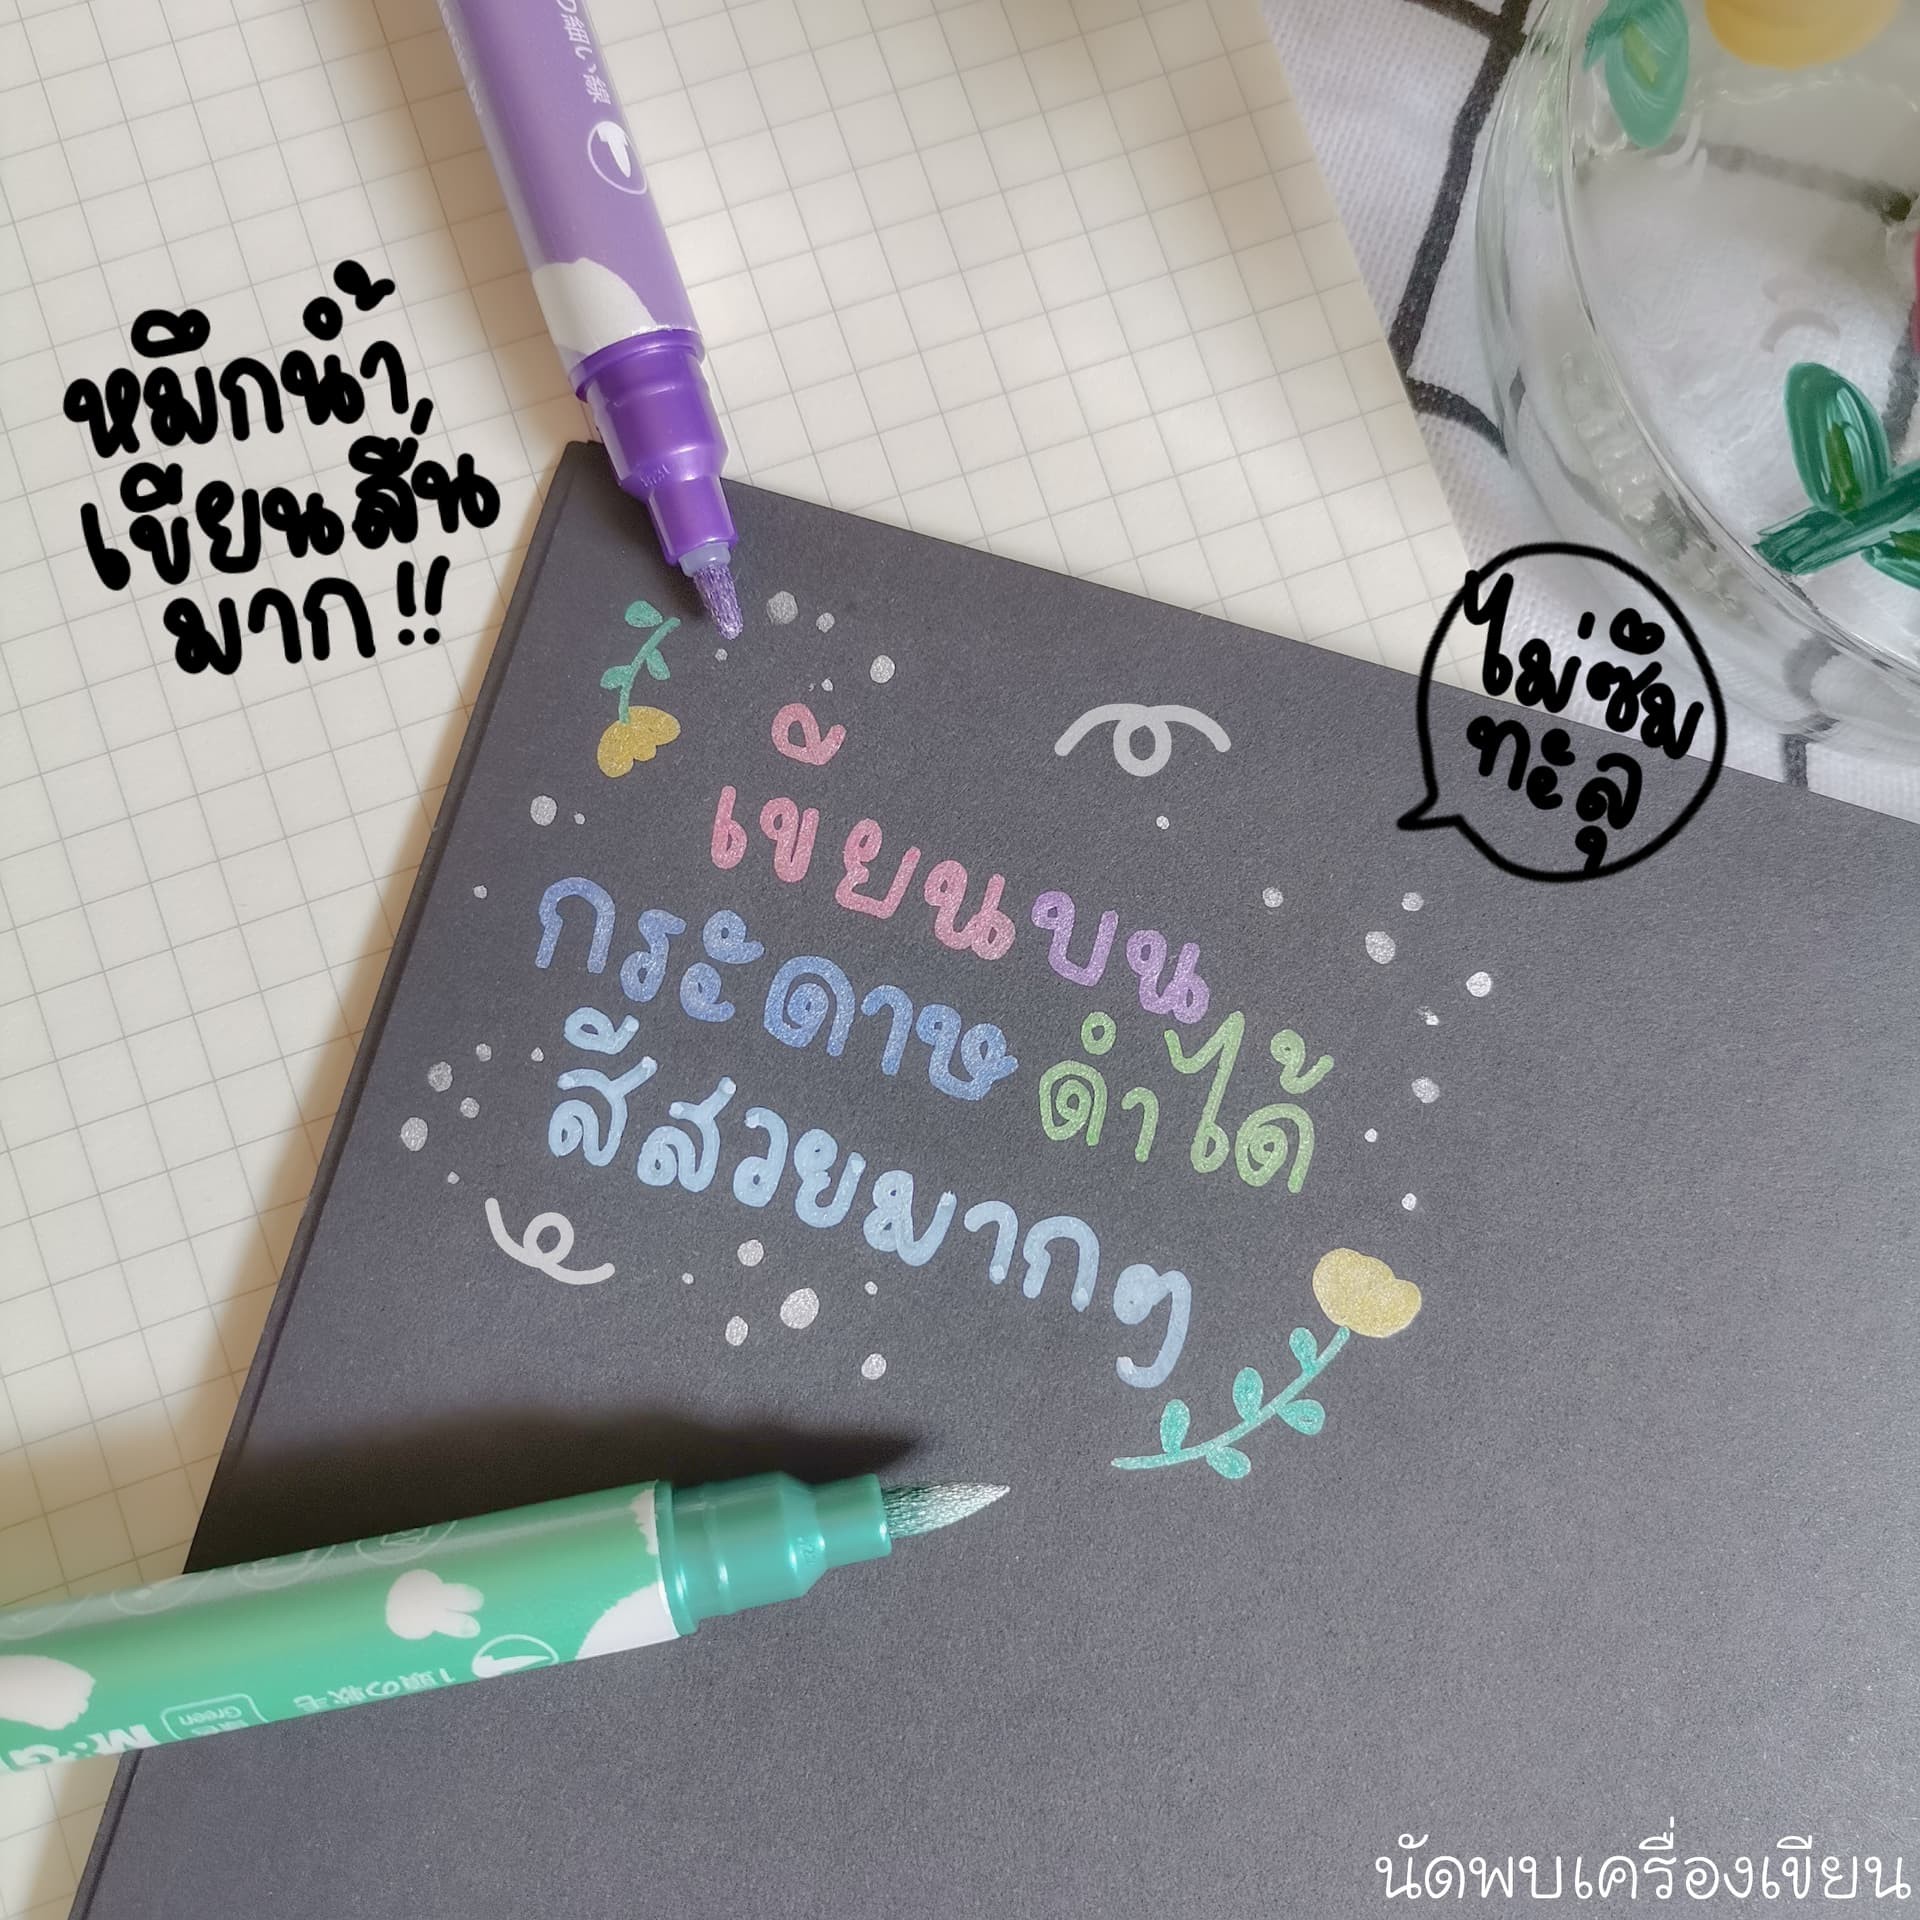 の細い線
หมึกน้ำ
เขียนลื่น
มาก!!
ไม่ซึม
ทะลุ
เขียนบน
กระดาษดำได้
สีสวยมากๆ
Green
นัดพบเครื่องเขียน